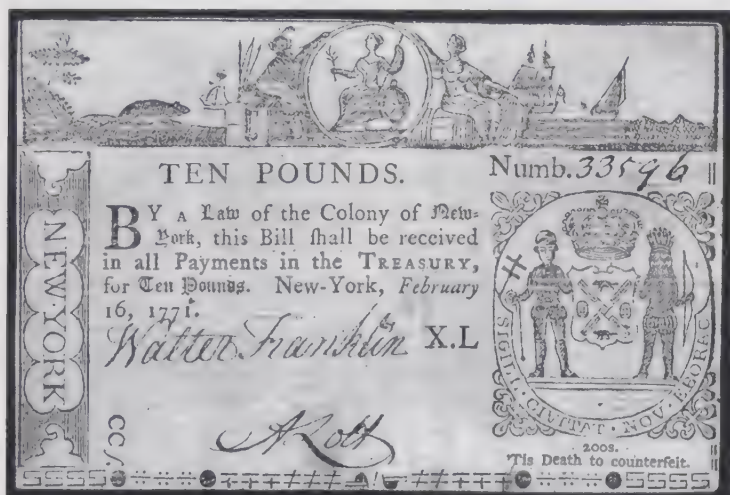 TEN POUNDS.
Numb. 33596
BY A Law of the Colony of New-
York, this Bill ſhall be received
in all Payments in the TREASURY,
for Ten Pounds. New-York, February
16, 1771.
Walter Franklin X.L
NEW-YORK
SIGILL · CIVITAT · NOV · EBORAC
200s.
'Tis Death to counterfeit.